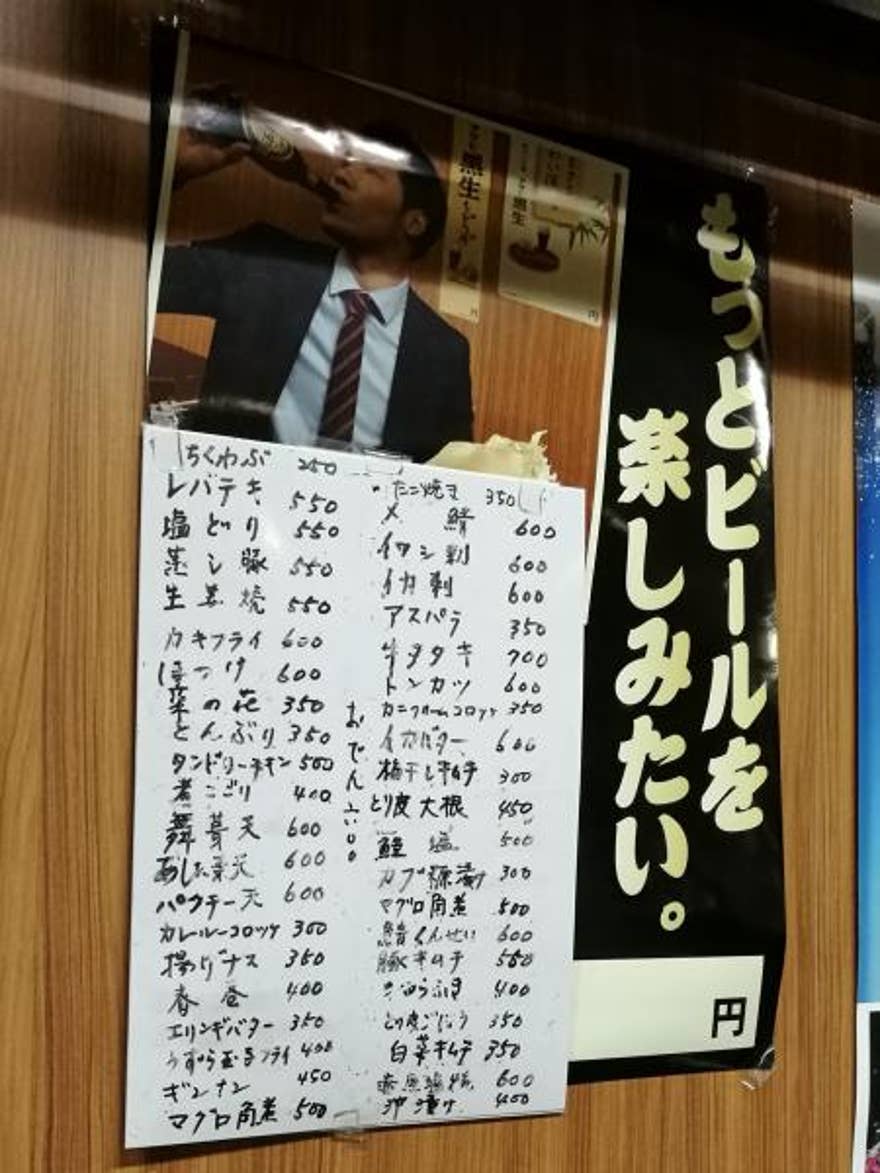 もっとビールを
楽しみたい。
黒生
黒生
円
円
円
ちくわぶ 250
レバテキ 550
塩どり 550
蒸し豚 550
生姜焼 550
カキフライ 600
ほっけ 600
菜の花 350
とんぶり 350
タンドリーチキン 500
煮こごり 400
舞茸天 600
あした葉天 600
パクチー天 600
カレールーコロッケ 300
揚げナス 350
春巻 400
エリンギバター 350
うずら玉子フライ 400
ギンナン 450
マグロ角煮 500
おでん
たこ焼き 350
〆鯖 600
イワシ刺 600
イカ刺 600
アスパラ 350
牛タタキ 700
トンカツ 600
カニクリームコロッケ 350
イカバター 600
梅干しキムチ 300
とり皮大根 450
鮭塩 500
カブ糠漬 300
マグロ角煮 500
鯖くんせい 600
豚キムチ 550
400
とり皮ごぼう 350
白菜キムチ 350
赤魚塩焼 600
沖漬け 400